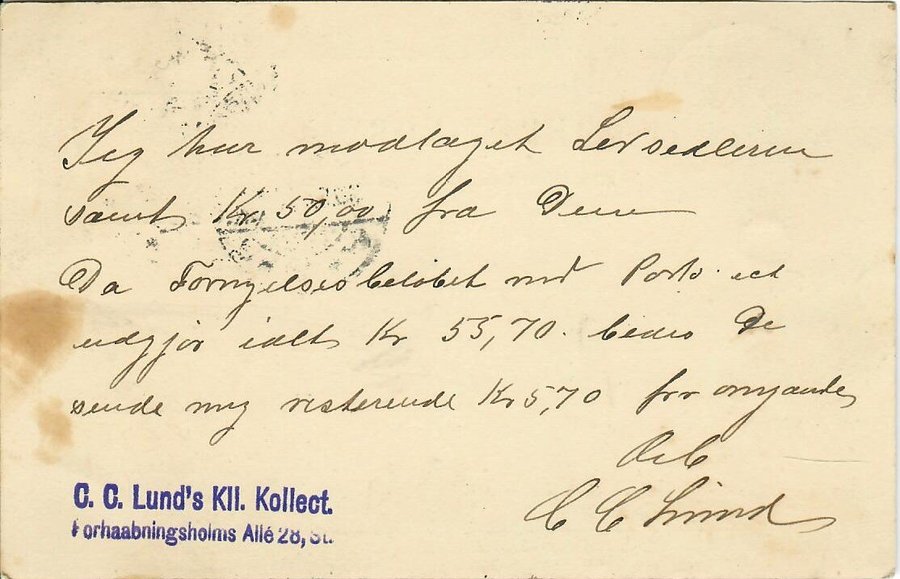 Jeg har modtaget Lodsedlerne
samt Kr 50,00 fra Dem
Da Fornyelsesbeløbet med Porto ect
udgjør ialt Kr 55,70. bedes De
sende mig resterende Kr 5,70 for omgaaende
Ærb
C C Lund
C. C. Lund's Kll. Kollect.
Forhaabningsholms Allé 28, St.